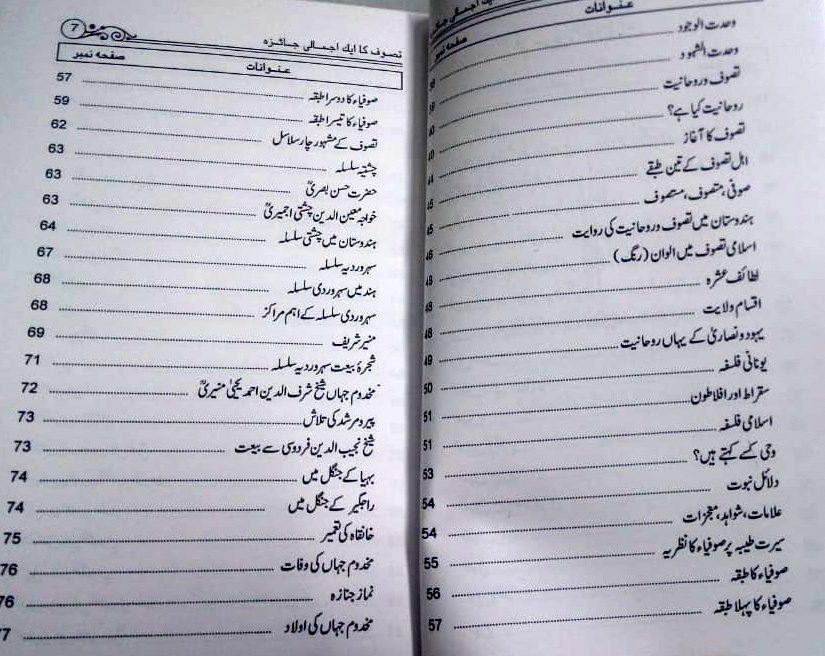 ایک اجمالی جائزہ
عنوانات صفحہ نمبر
وحدت الوجود
وحدت الشہود
تصوف وروحانیت
روحانیت کیا ہے؟
تصوف کا آغاز
اہل تصوف کے تین طبقے
صوفی، متصوف، مستصوف
ہندوستان میں تصوف وروحانیت کی روایت
اسلامی تصوف میں الوان (رنگ)
لطائف عشرہ
اقسام ولایت 48
یہود ونصاریٰ کے یہاں روحانیت 49
یونانی فلسفہ 50
سقراط اور افلاطون 51
اسلامی فلسفہ 51
وحی کسے کہتے ہیں؟ 53
دلائل نبوت 54
علامات، شواہد، معجزات 54
سیرت طیبہ پر صوفیاء کا نظریہ 55
صوفیاء کا طبقہ 56
صوفیاء کا پہلا طبقہ 57
تصوف کا ایک اجمالی جائزہ 7
عنوانات صفحہ نمبر
صوفیاء کا دوسرا طبقہ 57
صوفیاء کا تیسرا طبقہ 59
تصوف کے مشہور چار سلاسل 62
چشتیہ سلسلہ 63
حضرت حسن بصریؒ 63
خواجہ معین الدین چشتی اجمیریؒ 63
ہندوستان میں چشتی سلسلہ 64
سہروردیہ سلسلہ 67
ہند میں سہروردی سلسلہ 68
سہروردی سلسلہ کے اہم مراکز 68
منیر شریف 69
شجرۂ بیعت سہروردیہ سلسلہ 71
مخدوم جہاں شیخ شرف الدین احمد یحییٰ منیریؒ 72
پیر ومرشد کی تلاش 73
شیخ نجیب الدین فردوسی سے بیعت 73
بہیا کے جنگل میں 74
راجگیر کے جنگل میں 74
خانقاہ کی تعمیر 75
مخدوم جہاں کی وفات 76
نماز جنازہ 76
مخدوم جہاں کی اولاد 77